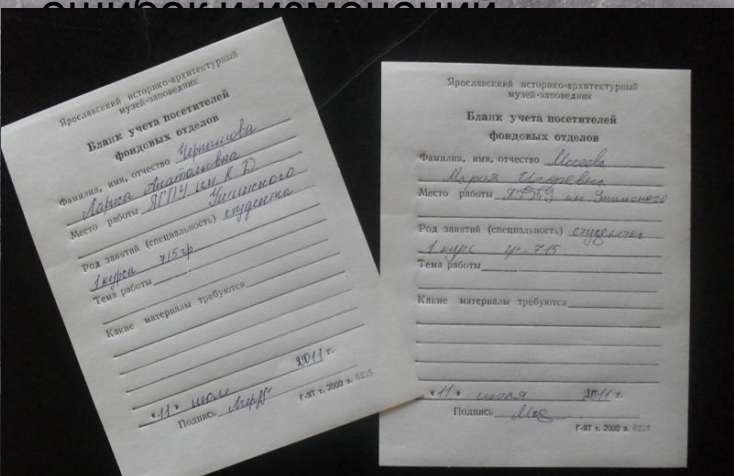 ошибок и изменений
Ярославский историко-архитектурный
музей-заповедник
Бланк учета посетителей
фондовых отделов
Фамилия, имя, отчество
Лариса Анатольевна
Место работы ЯГПУ им К Д
Ушинского
Род занятий (специальность) студентка
1 курса 715 гр
Тема работы
Какие материалы требуются
«11» июля 2011 г.
Подпись
Ярославский историко-архитектурный
музей-заповедник
Бланк учета посетителей
фондовых отделов
Фамилия, имя, отчество
Мария Игоревна
Место работы ЯГПУ им. Ушинского
Род занятий (специальность) студентка
1 курс гр. 715
Тема работы
Какие материалы требуются
«11» июля 2011 г.
Подпись
Г-ЯТ т. 2000 з. 6235